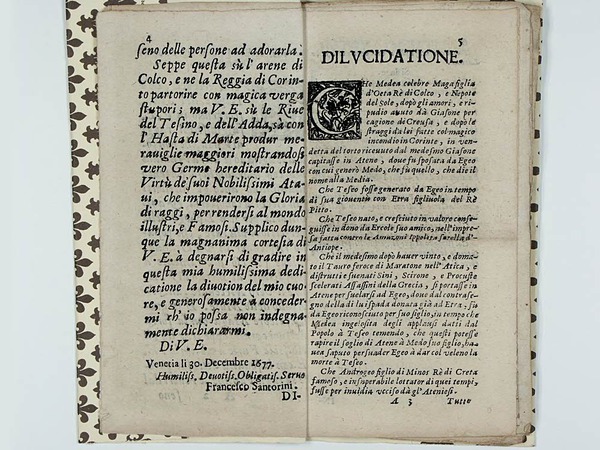 4
seno delle persone ad adorarla.
Seppe questa sù l'arene di
Colco, e ne la Reggia di Corin-
to partorire con magica verga
stupori; ma V. E. sù le Riue
del Tesino, e dell'Adda, sà con
l'Hasta di Marte produr me-
rauiglie maggiori mostrandosi
vero Germe hereditario delle
Virtù de suoi Nobilissimi Ata-
ui, che impouerirono la Gloria
di raggi, per rendersi al mondo
illustri, e Famosi. Supplico dun-
que la magnanima cortesia di
V. E. à degnarsi di gradire in
questa mia humilissima dedi-
catione la diuotion del mio cuo-
re, e generosamente à conceder-
mi ch'io possa non indegna-
mente dichiararmi.
Di V. E.
Venetia li 30. Decembre 1677.
Humiliss. Deuotiss. Obligatis. Seruo
Francesco Santorini.
DI-
5
DILVCIDATIONE.
CHe Medea celebre Maga figlia
d'Oeta Rè di Colco, e Nepote
del Sole, dopò gli amori, e ri-
pudio auuto dà Giasone per
cagione di Creusa, e dopò le
straggi da lei fatte col magico
incendio in Corinte, in ven-
detta del torto riceuuto dal medesmo Giasone
capitasse in Atene, doue fu sposata da Egeo
con cui generò Medo, che fù quello, che die il
nome alla Media.
Che Teseo fosse generato da Egeo in tempo
di sua giouentù con Etra figliuola del Rè
Pitto.
Che Teseo nato, e cresciuto in valore conse-
guisse in dono da Ercole suo amico, nell'impre-
sa fatta contro le Amazoni Ippolita sorella d'
Antiope.
Che il medesimo dopò hauer vinto, e doma-
to il Tauro feroce di Maratone nell'Attica, e
distrutti e suenati Sini, Scirone, e Procuste
scelerati Assassini della Grecia, si portasse in
Atene per suelarsi ad Egeo, doue dal contrase-
gno della di lui spada donata già ad Etra, sia
da Egeo riconosciuto per suo figlio, in tempo che
Medea ingelosita degli applausi datti dal
Popolo à Teseo temendo, che questi potesse
rapire il soglio di Atene à Medo suo figlio, ha-
uea saputo persuader Egeo à dar col veleno la
morte à Teseo.
Che Androgeo figlio di Minos Rè di Creta
famoso, e insuperabile lottator di quei tempi,
fusse per inuidia vcciso dà gl'Ateniesi.
A 3 Tutto